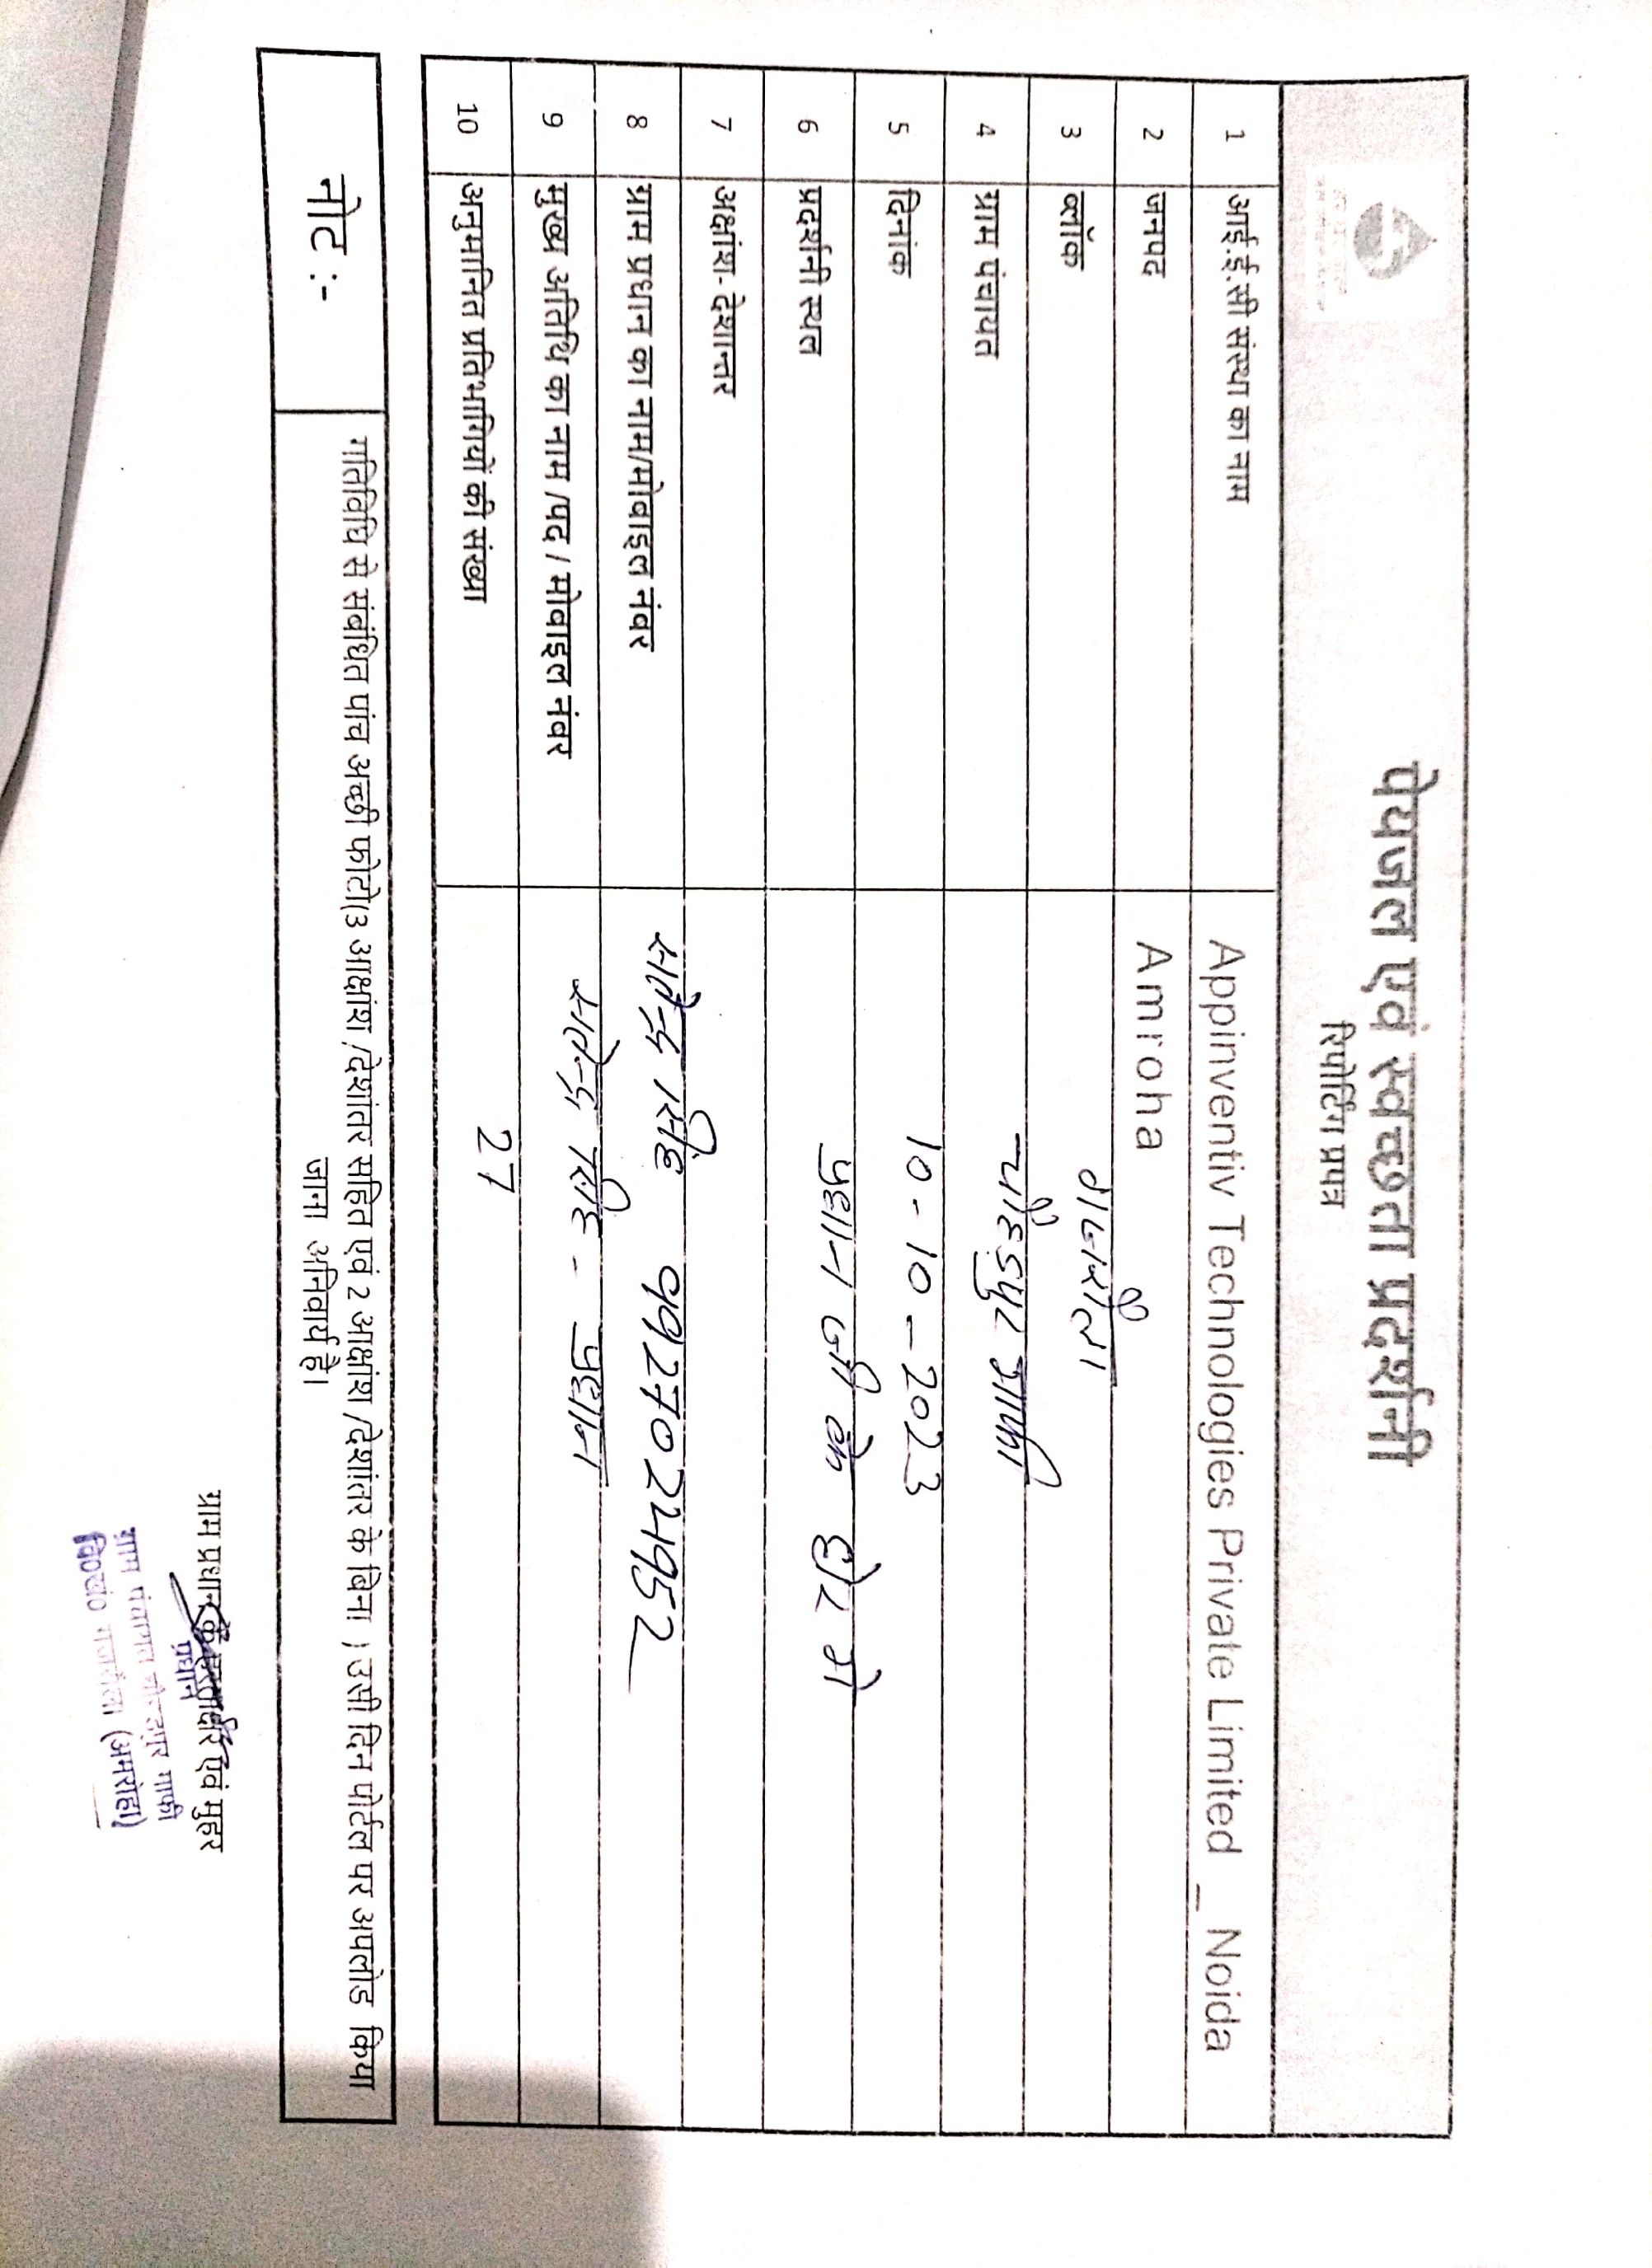 पेयजल एवं स्वच्छता प्रदर्शनी
रिपोर्टिंग प्रपत्र
1 आई.ई.सी संस्था का नाम Appinventiv Technologies Private Limited _ Noida
2 जनपद Amroha
3 ब्लॉक गजरौला
4 ग्राम पंचायत चाँहडपुर माफी
5 दिनांक 10-10-2023
6 प्रदर्शनी स्थल प्रधान जी के घेर मे
7 अक्षांश- देशान्तर
8 ग्राम प्रधान का नाम/मोबाइल नंबर सतेन्द्र सिंह 9927024952
9 मुख्य अतिथि का नाम /पद / मोबाइल नंबर सतेन्द्र सिंह - प्रधान
10 अनुमानित प्रतिभागियों की संख्या 27
नोट :-
गतिविधि से संबंधित पांच अच्छी फोटो(3 आक्षांश /देशांतर सहित एवं 2 आक्षांश /देशांतर के बिना ) उसी दिन पोर्टल पर अपलोड किया
जाना अनिवार्य है।
ग्राम प्रधान के हस्ताक्षर एवं मुहर
प्रधान
ग्राम पंचायत माफी
वि०खं० गजरौला (अमरोहा)